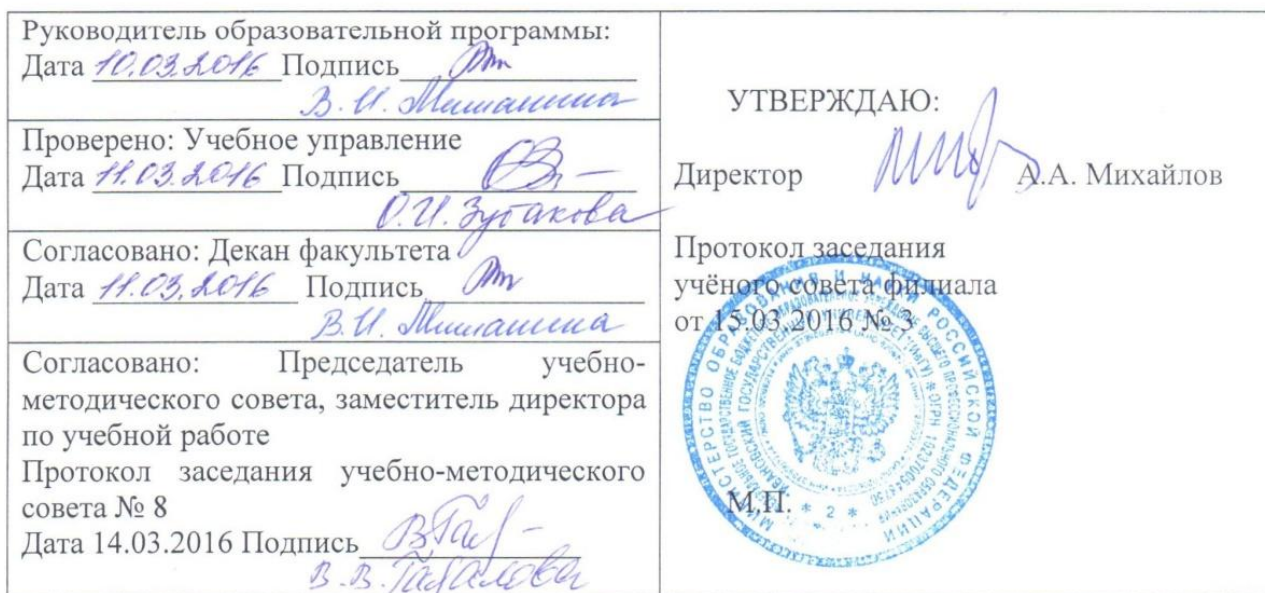 Руководитель образовательной программы:
Дата 10.03.2016 Подпись
В.И.
Проверено: Учебное управление
Дата 11.03.2016 Подпись
О.И.
Согласовано: Декан факультета
Дата 11.03.2016 Подпись
В.И.
Согласовано: Председатель учебно-
методического совета, заместитель директора
по учебной работе
Протокол заседания учебно-методического
совета № 8
Дата 14.03.2016 Подпись
В.В.
УТВЕРЖДАЮ:
Директор А.А. Михайлов
Протокол заседания
учёного совета филиала
от 15.03.2016 № 3
МИНИСТЕРСТВО ОБРАЗОВАНИЯ И НАУКИ РОССИЙСКОЙ ФЕДЕРАЦИИ
ИВАНОВСКИЙ ГОСУДАРСТВЕННЫЙ УНИВЕРСИТЕТ
М.П.
* 2 *